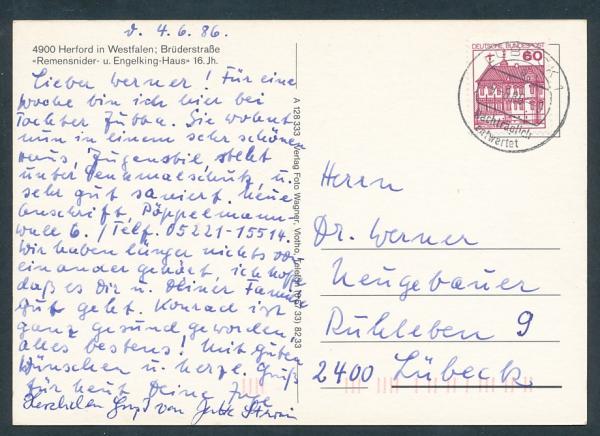 d. 4.6.86.
4900 Herford in Westfalen; Brüderstraße
»Remensnider- u. Engelking-Haus« 16. Jh.
Lieber Werner! Für eine
Woche bin ich hier bei
Tochter Jutta. Sie wohnt
nun in einem sehr schönen
Haus, Jugendstil, steht
unter Denkmalschutz, u.
sehr gut saniert. Neue
Anschrift, Pöppelmann-
wall 6. / Telf. 05221-15514.
Wir haben länger nichts von
einander gehört, ich hoffe
daß es Dir u. Deiner Familie
gut geht. Konrad ist
ganz gesund geworden,
alles bestens! Mit guten
Wünschen u. herzl. Gruß
für heut Deine
Herzlichen Gruß von
A 128 333 Verlag Foto Wagner, Vlotho, Telefon (0 57 33) 82 33
DEUTSCHE BUNDESPOST
60
LÜBECK 1
nachträglich
entwertet
Herrn
Dr. Werner
Neugebauer
Ruhleben 9
2400 Lübeck